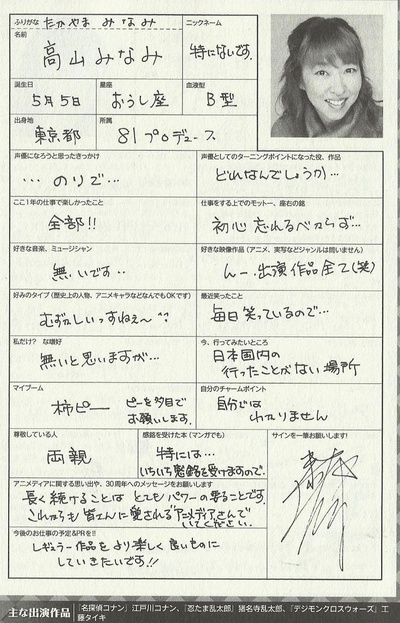 ふりがな たかやま みなみ
ニックネーム
名前 高山みなみ
特にないです。
誕生日 星座 血液型
5月5日 おうし座 B型
出身地 所属
東京都 81プロデュース
声優になろうと思ったきっかけ
…のりで…
声優としてのターニングポイントになった役、作品
どれなんでしょうか…
ここ1年の仕事で楽しかったこと
全部!!
仕事をする上でのモットー、座右の銘
初心忘れるべからず…
好きな音楽、ミュージシャン
無いです…
好きな映像作品(アニメ、実写などジャンルは問いません)
んー…出演作品全て(笑)
好みのタイプ(歴史上の人物、アニメキャラなどなんでもOKです)
むずかしいっすねぇ〜^^
最近笑ったこと
毎日笑っているので…
私だけ? な嗜好
無いと思いますが…
今、行ってみたいところ
日本国内の
行ったことがない場所
マイブーム
柿ピー ピーを多目で
お願いします。
自分のチャームポイント
自分では
わかりません
尊敬している人
両親
感銘を受けた本(マンガでも)
特には…
いちいち感銘を受けますので。
サインを一筆お願いします!
アニメディアに関する思い出や、30周年へのメッセージをお願いします
長く続けることは とてもパワーの要ることです。
これからも皆さんに愛される"アニメディアさん"で
いてください。
今後のお仕事の予定&PRを!!
レギュラー作品をより楽しく良いものに
していきたいです!!
主な出演作品
『名探偵コナン』江戸川コナン、『忍たま乱太郎』猪名寺乱太郎、『デジモンクロスウォーズ』工
藤タイキ